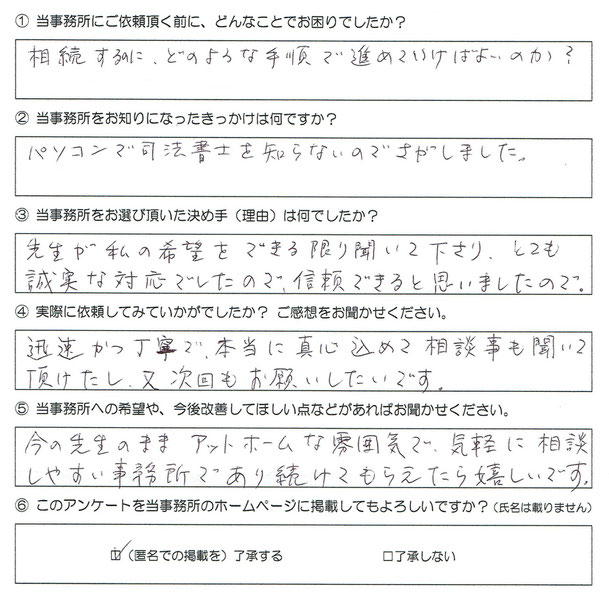 ① 当事務所にご依頼頂く前に、どんなことでお困りでしたか？
相続するのに、どのような手順で進めていけばよいのか？
② 当事務所をお知りになったきっかけは何ですか？
パソコンで司法書士を知らないのでさがしました。
③ 当事務所をお選び頂いた決め手（理由）は何でしたか？
先生が私の希望をできる限り聞いて下さり、とても
誠実な対応でしたので、信頼できると思いましたので。
④ 実際に依頼してみていかがでしたか？ ご感想をお聞かせください。
迅速かつ丁寧で、本当に真心込めて相談事も聞いて
頂けたし、又次回もお願いしたいです。
⑤ 当事務所への希望や、今後改善してほしい点などがあればお聞かせください。
今の先生のまま アットホームな雰囲気で、気軽に相談
しやすい事務所であり続けてもらえたら嬉しいです。
⑥ このアンケートを当事務所のホームページに掲載してもよろしいですか？（氏名は載りません）
☑（匿名での掲載を）了承する □了承しない